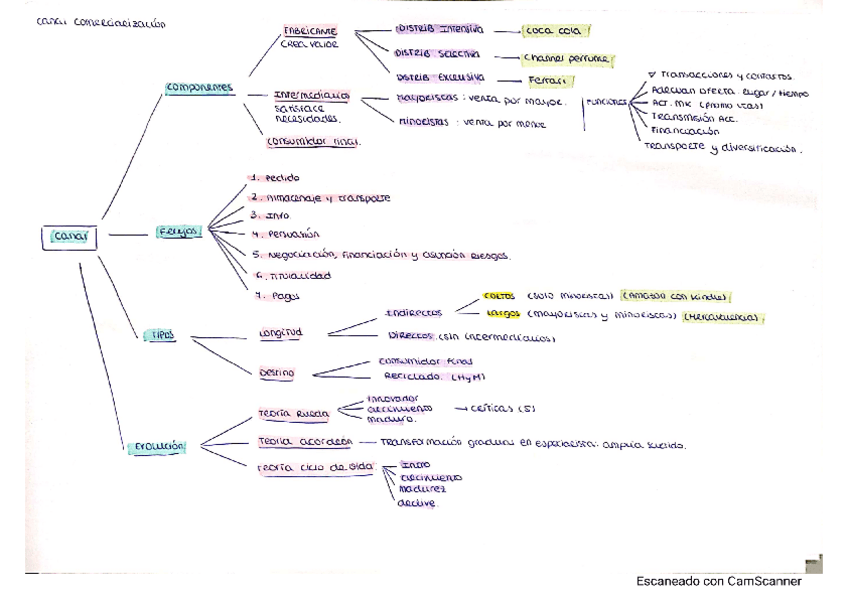 canal comercialización
FABRICANTE
crea valor
DISTRIB INTENSIVA
coca cola
DISTRIB SELECTIVA
channel perfume
DISTRIB EXCLUSIVA
Ferrari
componentes
Intermediarios
satisface
necesidades.
mayoristas : venta por mayor.
minoristas : venta por menor
Funciones
Transacciones y contactos.
Adecuan oferta. lugar / tiempo
Act. MK
Transmisión Acc.
Financiación
Transporte y diversificación.
consumidor final.
canal
Flujos
1. Pedido
2. Almacenaje y transporte
3. Info
4. Persuasión
5. Negociación, financiación y asunción riesgos.
6. Titularidad
7. Pagos
Tipos
Longitud
Indirectos
cortos (solo minoristas) (Amazon con Kindle)
Largos (mayoristas y minoristas) (Mercavalencia)
Directos (sin intermediarios)
Destino
consumidor final
Reciclado. (HyM)
Evolución
Teoría Rueda
innovador
crecimiento
maduro.
críticas (5)
Teoría acordeón
Transformación gradual en especialista: amplia surtido.
Teoría ciclo de vida
Intro
crecimiento
madurez
declive.
Escaneado con CamScanner